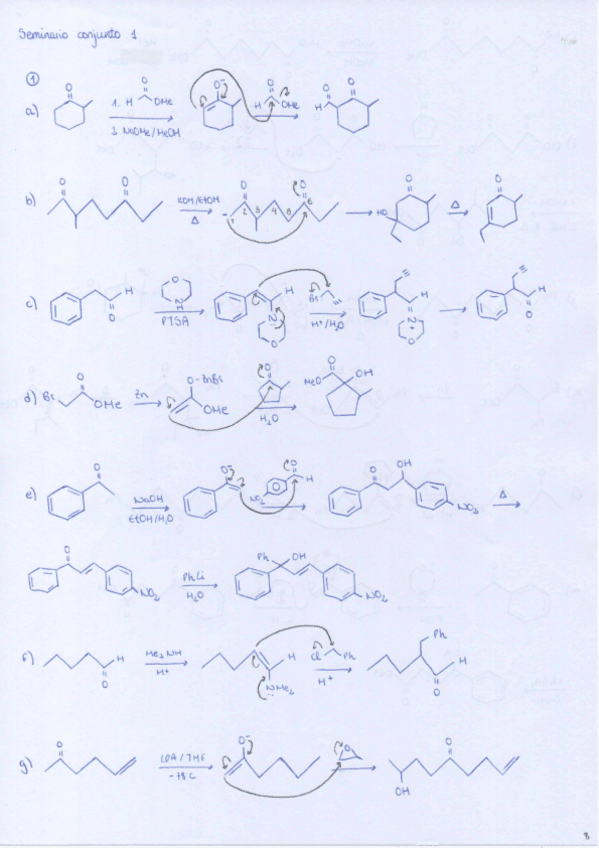 Seminario conjunto 1
①
a) O 1. H O OMe 2. NaOMe/MeOH O⁻ H O OMe H O O
b) O O KOH/EtOH Δ O O 1 2 3 4 5 6 HO O Δ O
c) H O O N H PTSA H N O Br H⁺/H₂O H N⁺ O H O
d) Br O OMe Zn O-ZnBr OMe O H₂O MeO O OH
e) O NaOH EtOH/H₂O O⁻ NO₂ O H O OH NO₂ Δ
O NO₂ PhLi H₂O Ph OH NO₂
f) H O Me₂NH H⁺ H NMe₂ Cl Ph H⁺ Ph H O
g) O LDA/THF -78C O⁻ O O OH
8